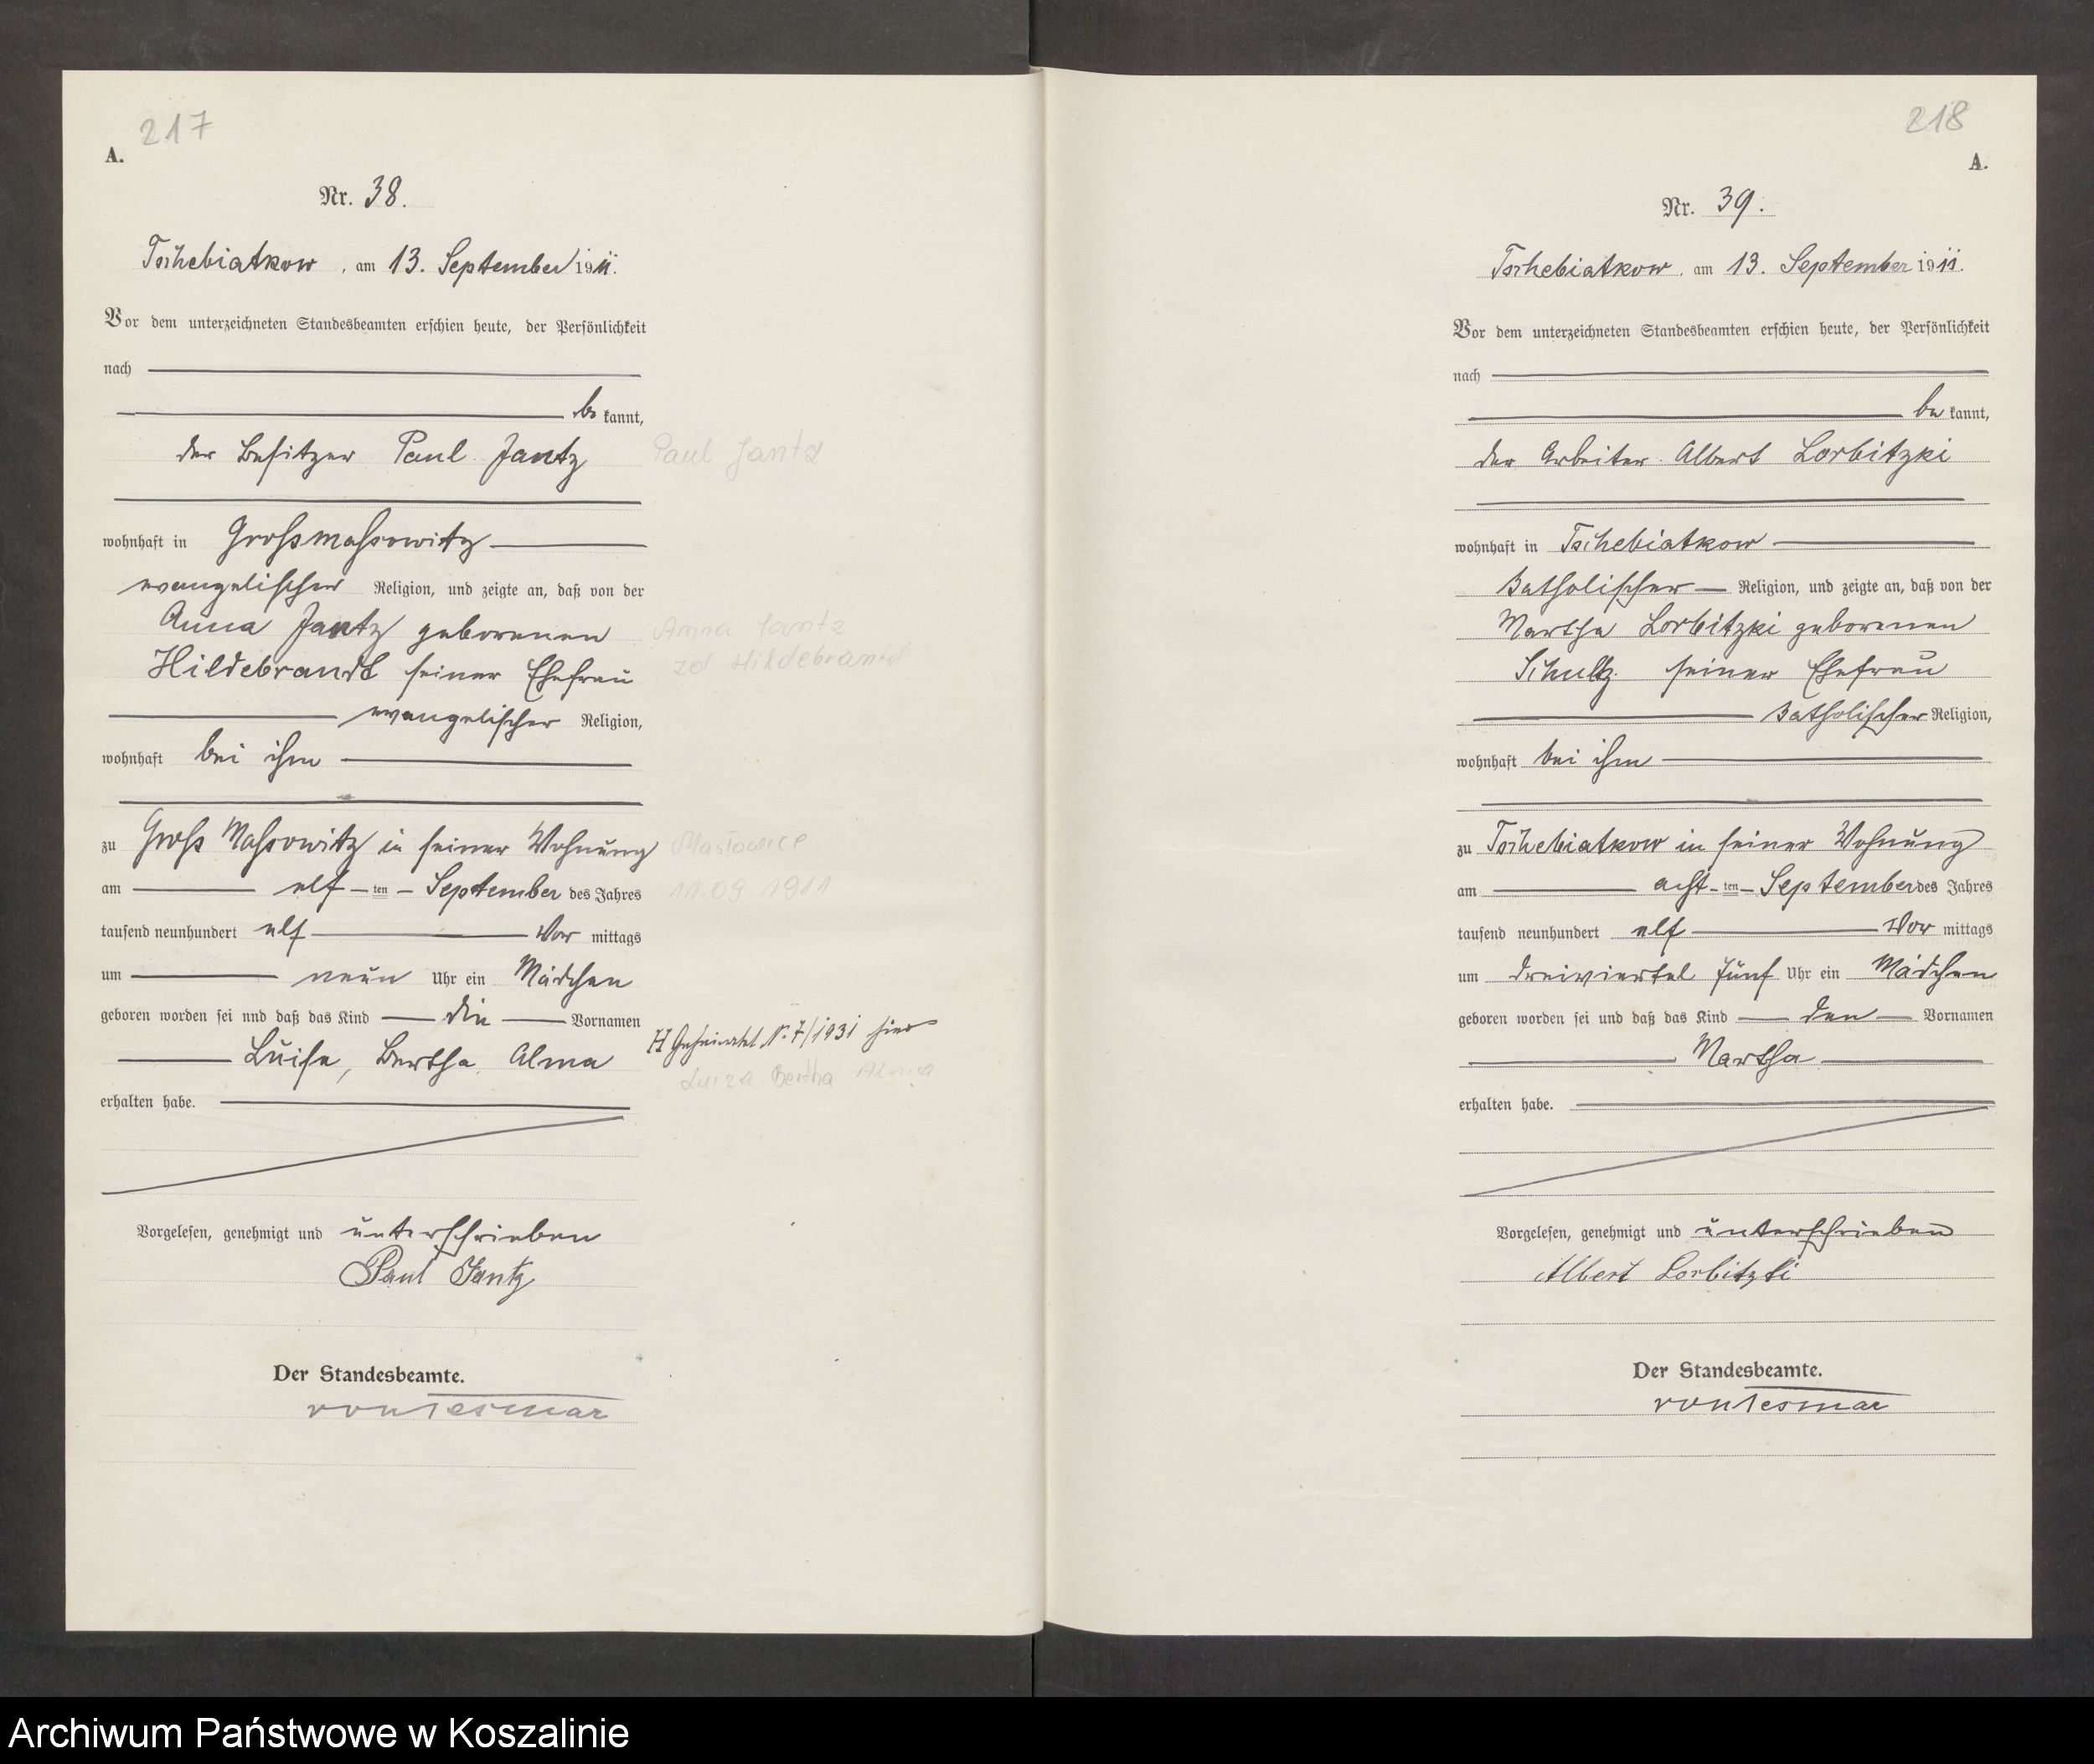 217
A.
Nr. 38.
Tschebiatkow, am 13. September 1911.
Vor dem unterzeichneten Standesbeamten erschien heute, der Persönlichkeit
nach
be kannt,
der Besitzer Paul Jantz
Paul Jantz
wohnhaft in Grossmassowitz
evangelischer Religion, und zeigte an, daß von der
Anna Jantz geborenen
Anna Jantz
Hildebrandt seiner Ehefrau
zd. Hildebrand
evangelischer Religion,
wohnhaft bei ihm
zu Gross Massowitz in seiner Wohnung
Masłowice
am elf ten September des Jahres
11.09.1911
tausend neunhundert elf Vor mittags
um neun Uhr ein Mädchen
geboren worden sei und daß das Kind die Vornamen
H Geheiratet Nr. 7/1931 hier
Luise, Bertha Alma
Luiza Bertha Alma
erhalten habe.
Vorgelesen, genehmigt und unterschrieben
Paul Jantz
Der Standesbeamte.
von Tesmar
218
A.
Nr. 39.
Tschebiatkow, am 13. September 1911.
Vor dem unterzeichneten Standesbeamten erschien heute, der Persönlichkeit
nach
be kannt,
der Arbeiter Albert Lorbitzki
wohnhaft in Tschebiatkow
katholischer Religion, und zeigte an, daß von der
Martha Lorbitzki geborenen
Schultz seiner Ehefrau
katholischer Religion,
wohnhaft bei ihm
zu Tschebiatkow in seiner Wohnung
am acht ten September des Jahres
tausend neunhundert elf Vor mittags
um dreiviertel fünf Uhr ein Mädchen
geboren worden sei und daß das Kind den Vornamen
Martha
erhalten habe.
Vorgelesen, genehmigt und unterschrieben
Albert Lorbitzki
Der Standesbeamte.
von Tesmar
Archiwum Państwowe w Koszalinie